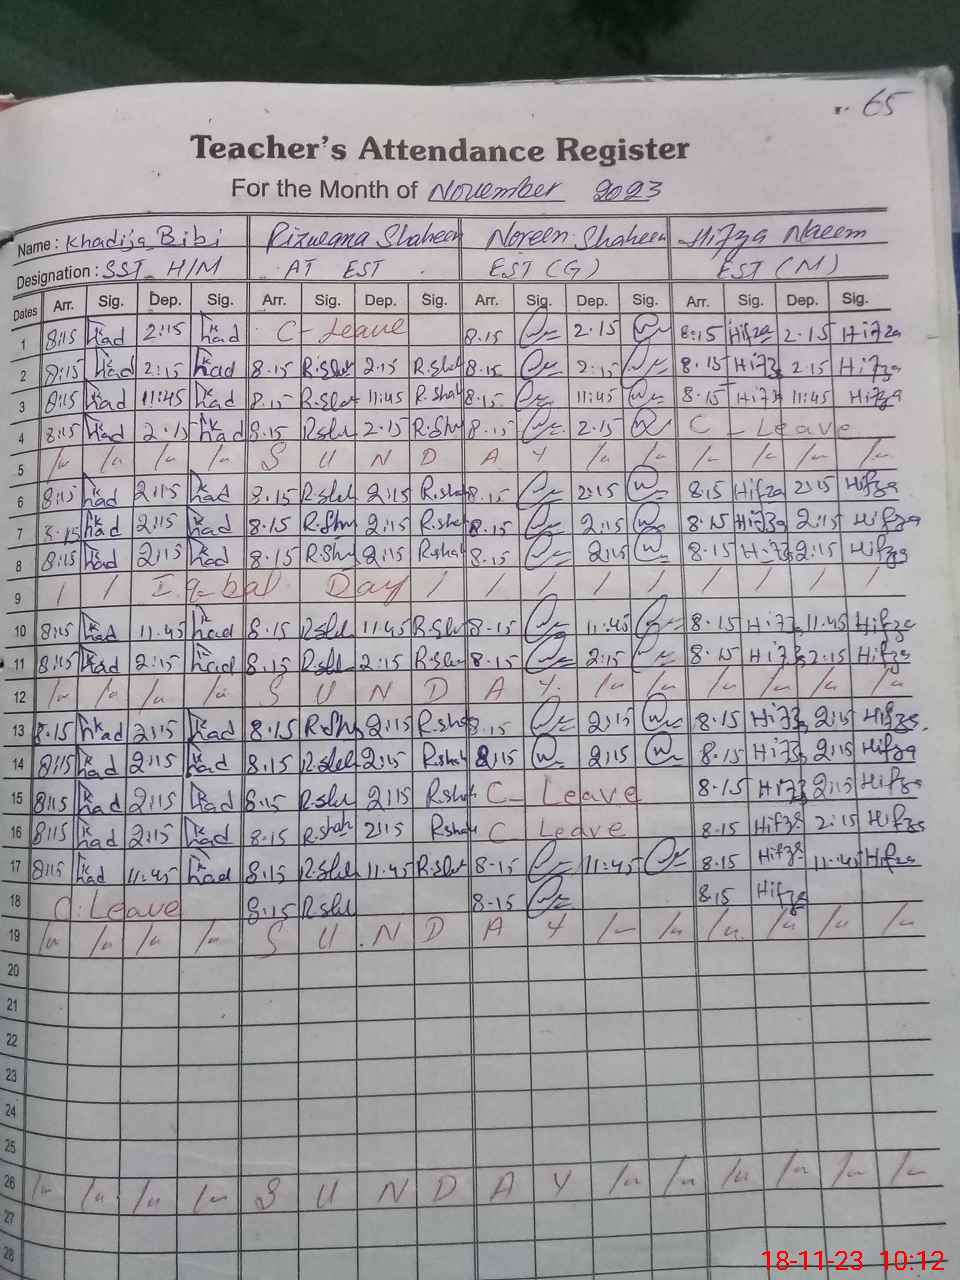 65
Teacher's Attendance Register
For the Month of November 2023
Name: Khadija Bibi Rizwana Shaheen Noreen Shaheen Hifza Naeem
Designation: SST H/M AT EST EST (G) EST (M)
Dates Arr. Sig. Dep. Sig. Arr. Sig. Dep. Sig. Arr. Sig. Dep. Sig. Arr. Sig. Dep. Sig.
1 8:15 khad 2:15 khad C-Leave 8.15 2.15 8.15 Hifza 2.15 Hifza
2 8:15 khad 2:15 khad 8.15 R.Shah 2.15 R.Shah 8.15 2:15 8.15 Hifza 2.15 Hifza
3 8:15 khad 11:45 khad 8.15 R.Shah 11:45 R.Shah 8.15 11:45 8.15 Hifza 11:45 Hifza
4 8:15 khad 2.15 khad 8.15 R.Sh 2.15 R.Sh 8.15 2.15 C - Leave
5 S U N D A Y
6 8:15 khad 2:15 khad 8.15 R.Shah 2:15 R.Shah 8.15 2:15 8.15 Hifza 2:15 Hifza
7 8.15 khad 2:15 khad 8.15 R.Sh 2:15 R.Shah 8.15 2:15 8.15 Hifza 2:15 Hifza
8 8:15 khad 2:15 khad 8.15 R.Sh 2:15 R.Shah 8.15 2:15 8.15 Hifza 2:15 Hifza
9 / / Iqbal Day / / / / / / / / /
10 8:15 khad 11.45 khad 8.15 R.Shah 11:45 R.Shah 8.15 11:45 8.15 Hifza 11.45 Hifza
11 8:15 khad 2:15 khad 8.15 R.Shah 2:15 R.Shah 8.15 2:15 8.15 Hifza 2.15 Hifza
12 S U N D A Y
13 8.15 khad 2:15 khad 8.15 R.Sh 2:15 R.Shah 8.15 2:15 8.15 Hifza 2:15 Hifza
14 8:15 khad 2:15 khad 8:15 R.Shah 2:15 R.Shah 8:15 2:15 8.15 Hifza 2:15 Hifza
15 8:15 khad 2:15 khad 8:15 R.Shah 2:15 R.Shah C- Leave 8.15 Hifza 2:15 Hifza
16 8:15 khad 2:15 khad 8.15 R.Shah 2:15 R.Shah C Leave 8.15 Hifza 2:15 Hifza
17 8:15 khad 11:45 khad 8:15 R.Shah 11:45 R.Shah 8.15 11:45 8.15 Hifza 11.45 Hifza
18 C.Leave 8:15 R.Shah 8.15 8.15 Hifza
19 S U N D A Y
20
21
22
23
24
25
26 S U N D A Y
27
28
18-11-23 10:12